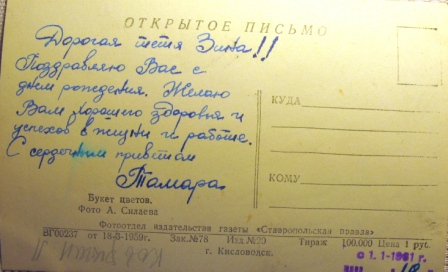 ОТКРЫТОЕ ПИСЬМО
Дорогая тётя Зина!!
Поздравляю Вас с
днём рождения. Желаю
Вам хорошего здоровья и
успехов в жизни и работе.
С сердечным приветом
Тамара.
КУДА
КОМУ
Букет цветов.
Фото А. Силаева
Фотоотдел издательства газеты «Ставропольская правда»
ВГ00237 от 18-3-1959г. Зак.№78 Изд.№20 Тираж 100.000 Цена 1 руб.
г. Кисловодск.
с 1.1-1961 г.